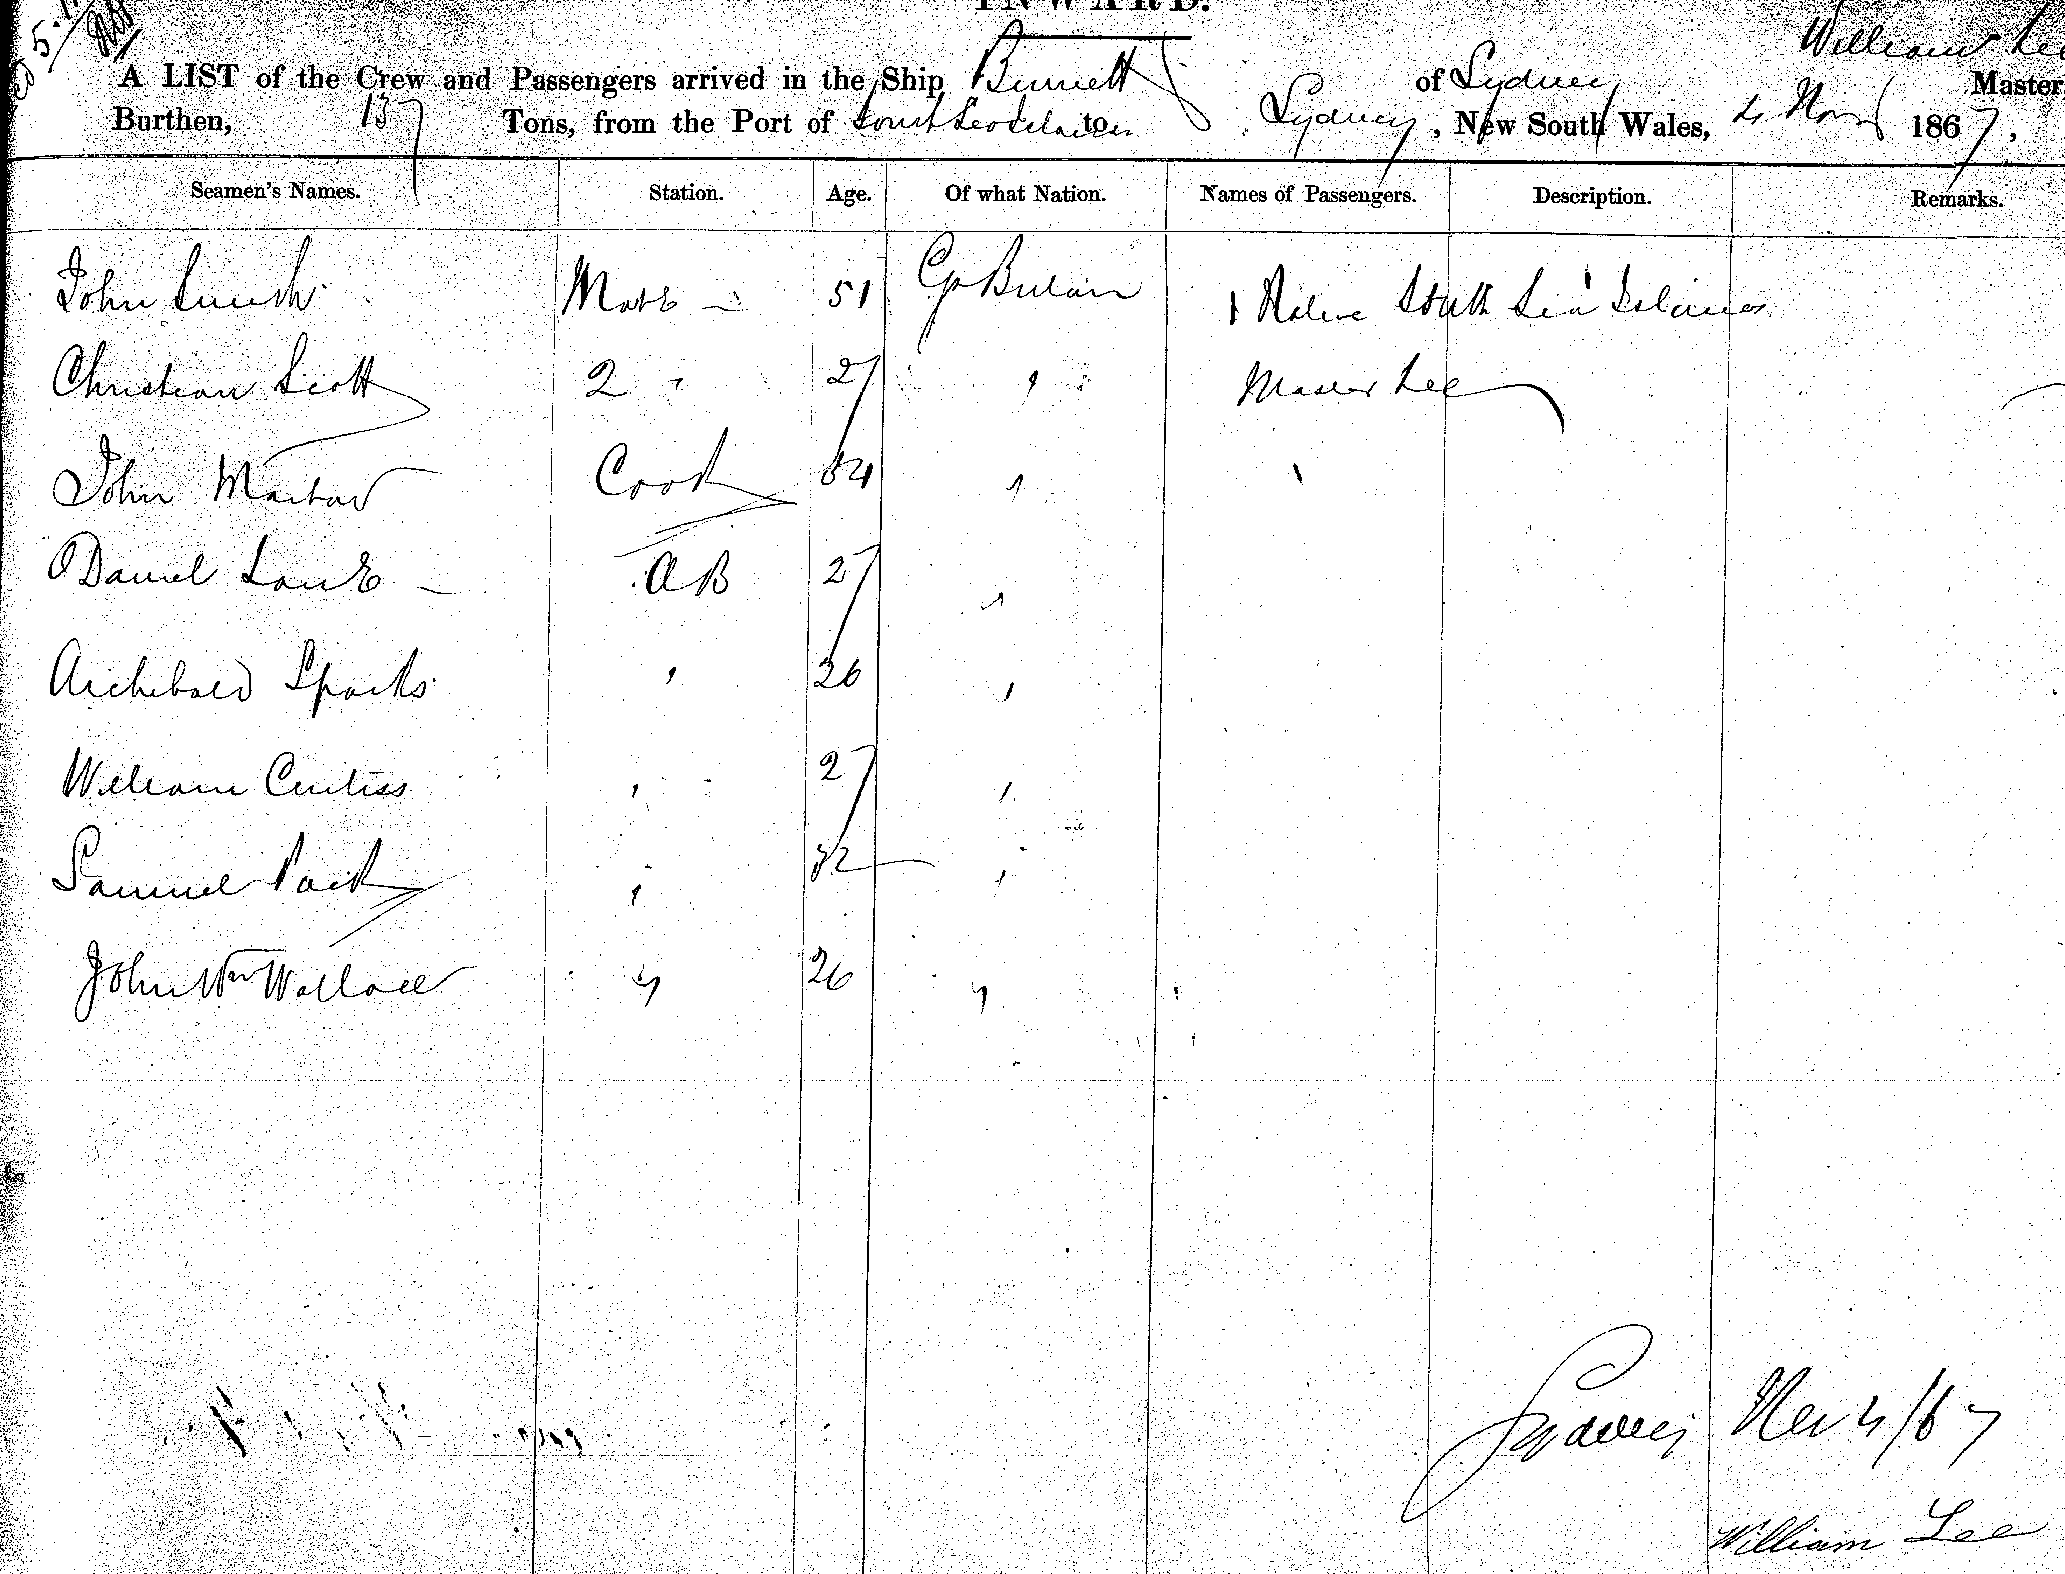 INWARD.
William Lee
A LIST of the Crew and Passengers arrived in the Ship Burnett of Sydney Master
Burthen, 137 Tons, from the Port of South Sea Islands to Sydney, New South Wales, 4 Nov 1867,
Seamen's Names. Station. Age. Of what Nation. Names of Passengers. Description. Remarks.
John Mate 51 Gt Britain 1 Native South Sea Islands
Christian Scott 2 " 27 " Master Lee
John Cook 54 "
Daniel AB 27 "
Archibald Sparks " 26 "
William Curtiss " 27 "
Samuel Pack " 32 "
John Wm Wallace " 26 "
Sydney Nov 4/67
William Lee